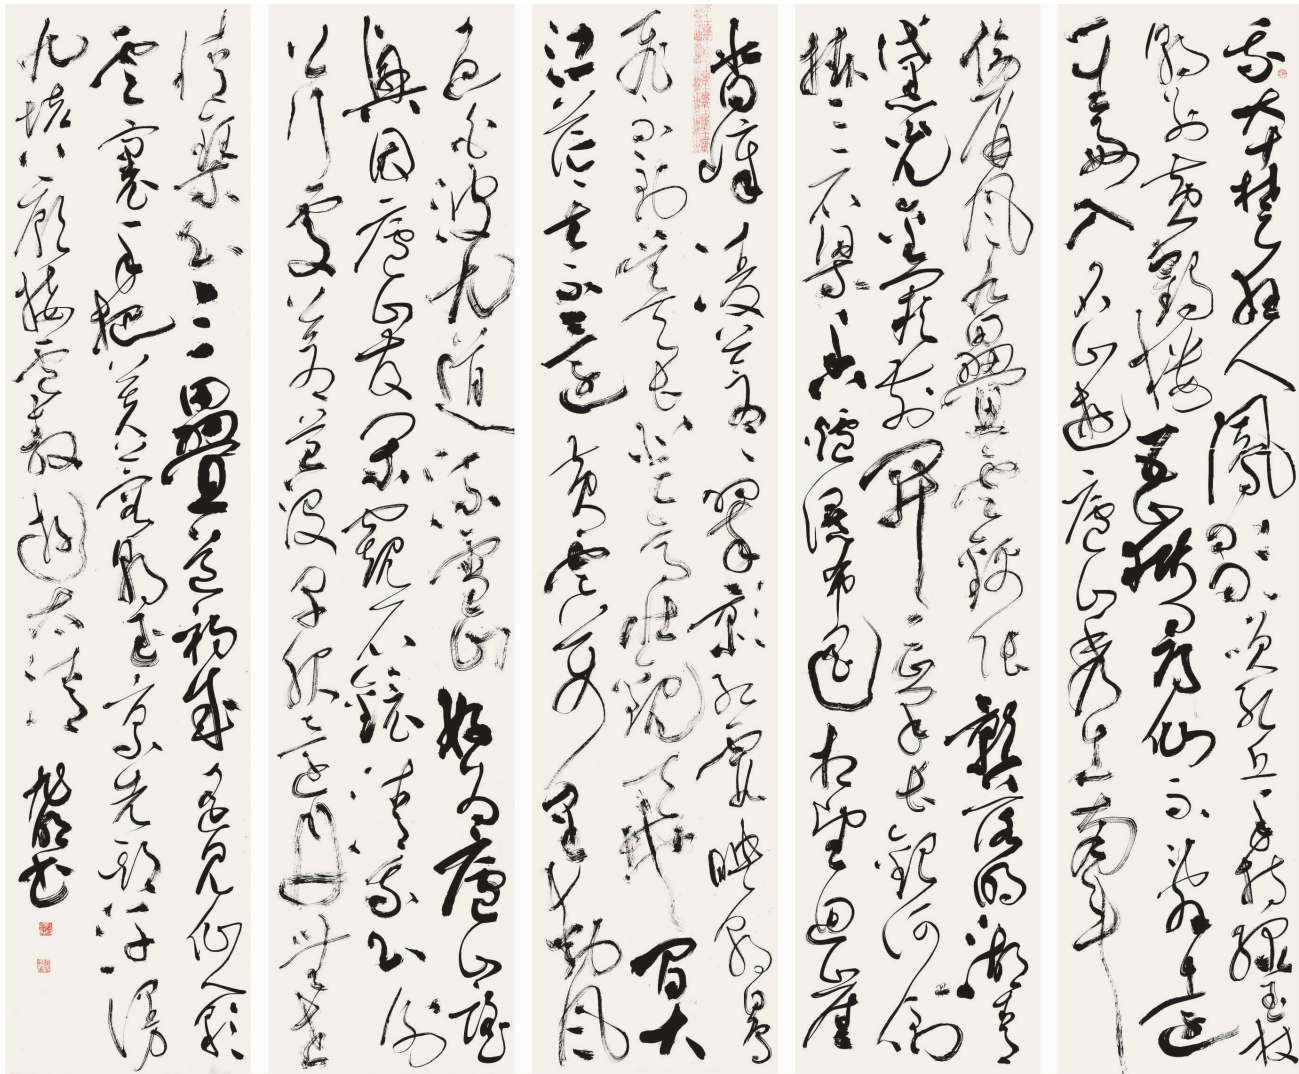 我本楚狂人鳳歌笑孔丘手持綠玉杖
朝別黃鶴樓五嶽尋仙不辭遠
一生好入名山遊廬山秀出南斗
傍屏風九疊雲錦張影落明湖青
黛光金闕前開二峰長銀河倒
掛三石梁香爐瀑布遙相望迴崖
沓嶂凌蒼蒼翠影紅霞映朝日鳥
飛不到吳天長登高壯觀天地間大
江茫茫去不還黃雲萬里動風
色白波九道流雪山好為廬山謠
興因廬山發閑窺石鏡清我心謝
公行處蒼苔沒早服還丹無世
情琴心三疊道初成遙見仙人彩
雲裏手把芙蓉朝玉京先期汗漫
九垓上願接盧敖遊太清